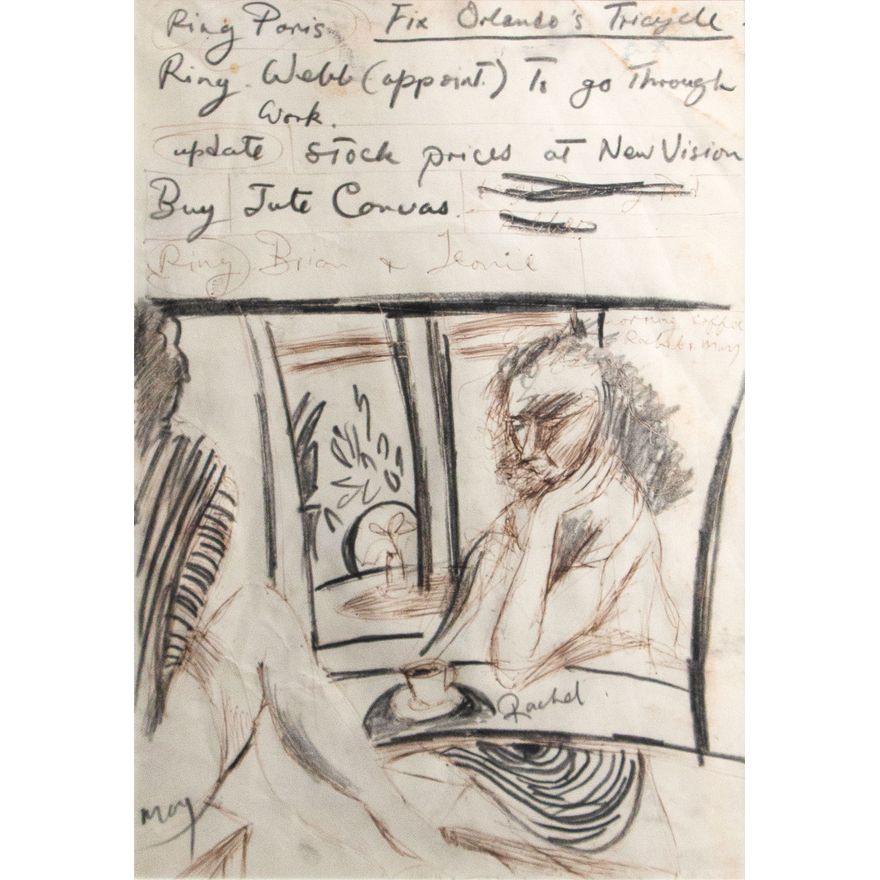 Ring Paris Fix Orlando's Tricycle
Ring Webb (appoint.) To go Through
Work.
update stock prices at New Vision
Buy Jute Canvas.
Ring Brian + Leonie
morning coffee
Rachel & May
Rachel
May